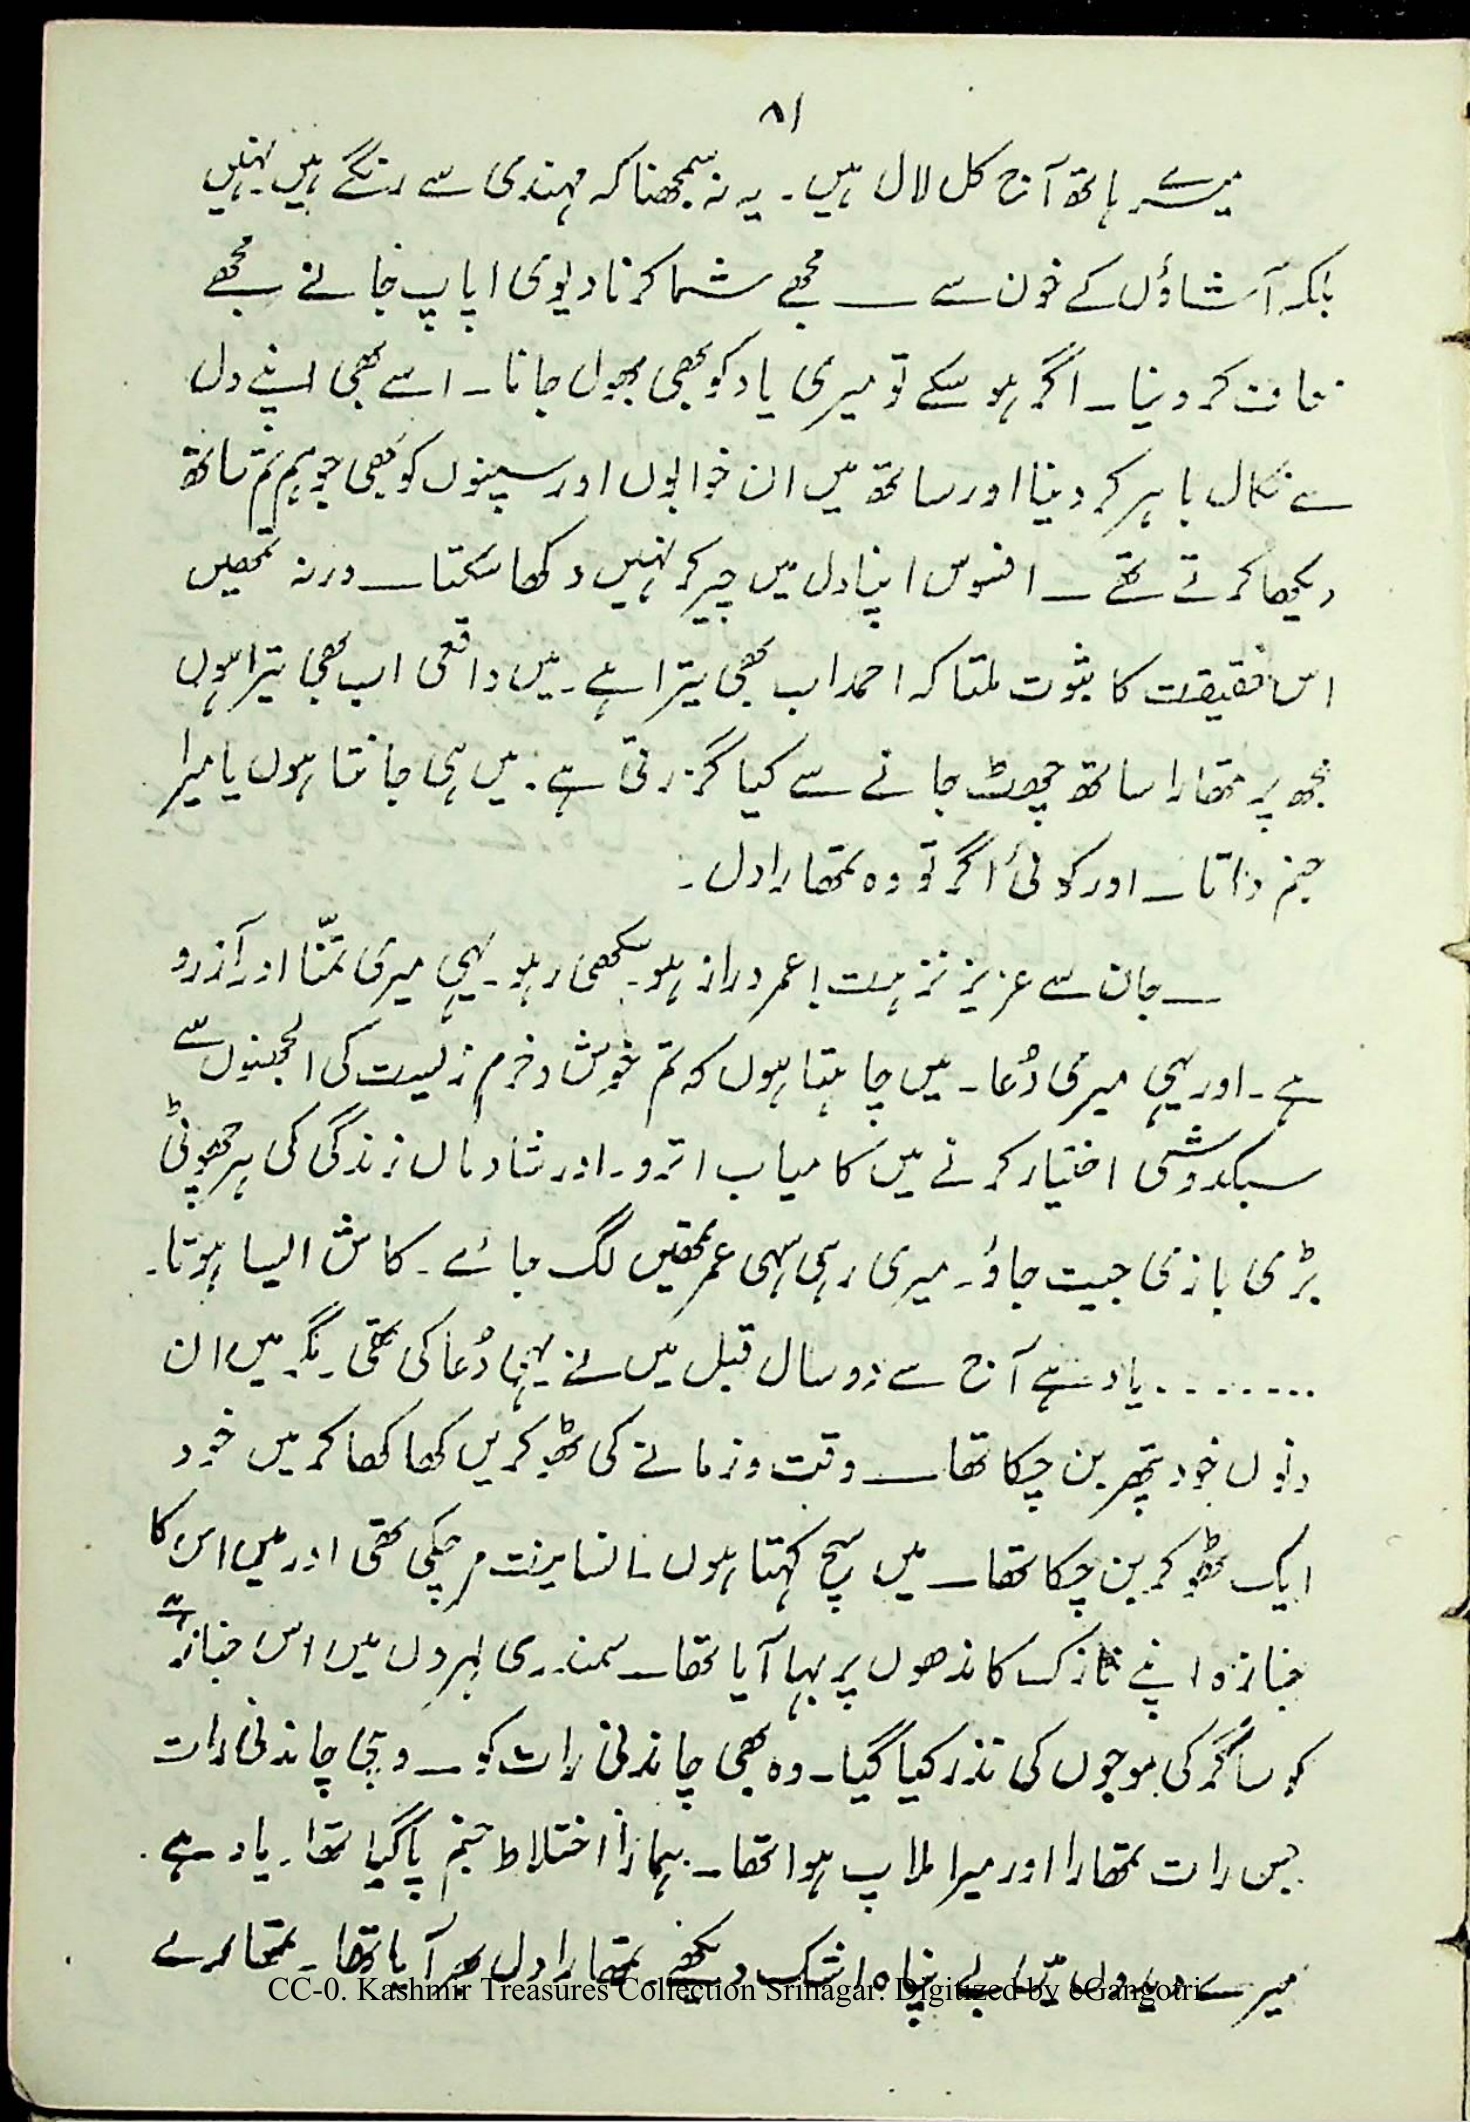 ۸۱
میرے ہاتھ آج کل لال ہیں۔ یہ نہ سمجھنا کہ مہندی سے رنگے ہیں۔ نہیں
بلکہ آشاؤں کے خون سے ــــ مجھے شما کرنا دیوی! پاپ جانے مجھے
معاف کر دینا۔ اگر ہو سکے تو میری یاد کو بھی بھول جانا۔ اسے بھی اپنے دل
سے نکال باہر کر دینا اور ساتھ میں ان خوابوں اور سپنوں کو بھی جو ہم تم ساتھ
دیکھا کرتے تھے ــ افسوس اپنا دل میں چیر کر نہیں دکھا سکتا ــ ورنہ تمھیں
اس حقیقت کا ثبوت ملتا کہ احمد اب بھی تیرا ہے۔ میں واقعی اب بھی تیرا ہوں
مجھ پر تمھارا ساتھ چھوٹ جانے سے کیا گزرتی ہے۔ میں ہی جانتا ہوں یا میرا
جنم داتا ــ اور کوئی اگر تو وہ تمھارا دل۔
ــ جان سے عزیز نزہت! عمر دراز ہو۔ سکھی رہو۔ یہی میری تمنّا اور آرزو
ہے۔ اور یہی میری دُعا۔ میں چاہتا ہوں کہ تم خوش و خرم زیست کی الجھنوں سے
سبکدوشی اختیار کرنے میں کامیاب اترو۔ اور شادماں زندگی کی ہر چھوٹی
بڑی بازی جیت جاؤ۔ میری رہی سہی عمر تمھیں لگ جائے۔ کاش ایسا ہوتا۔
........ یاد ہے آج سے دو سال قبل میں نے یہی دُعا کی تھی۔ مگر میں ان
دنوں خود پتھر بن چکا تھا ــ وقت و زمانے کی ٹھوکریں کھا کھا کر میں خود
ایک ٹھوکر بن چکا تھا ــ میں سچ کہتا ہوں۔ انسانیت مر چکی تھی اور میں اس کا
جنازہ اپنے نازک کاندھوں پر بہا آیا تھا ــ سمندری لہروں میں اس جنازے
کو ساگر کی موجوں کی نذر کیا گیا۔ وہ بھی چاندنی رات کو ــ وہی چاندنی رات
جس رات تمھارا اور میرا ملاپ ہوا تھا۔ ہمارا اختلاط جنم پا گیا تھا۔ یاد ہے۔
میرے دیدوں میں بے پناہ اشک دیکھے۔ تمھارا دل بھر آیا تھا۔ تمھارے
CC-0. Kashmir Treasures Collection Srinagar. Digitized by eGangotri